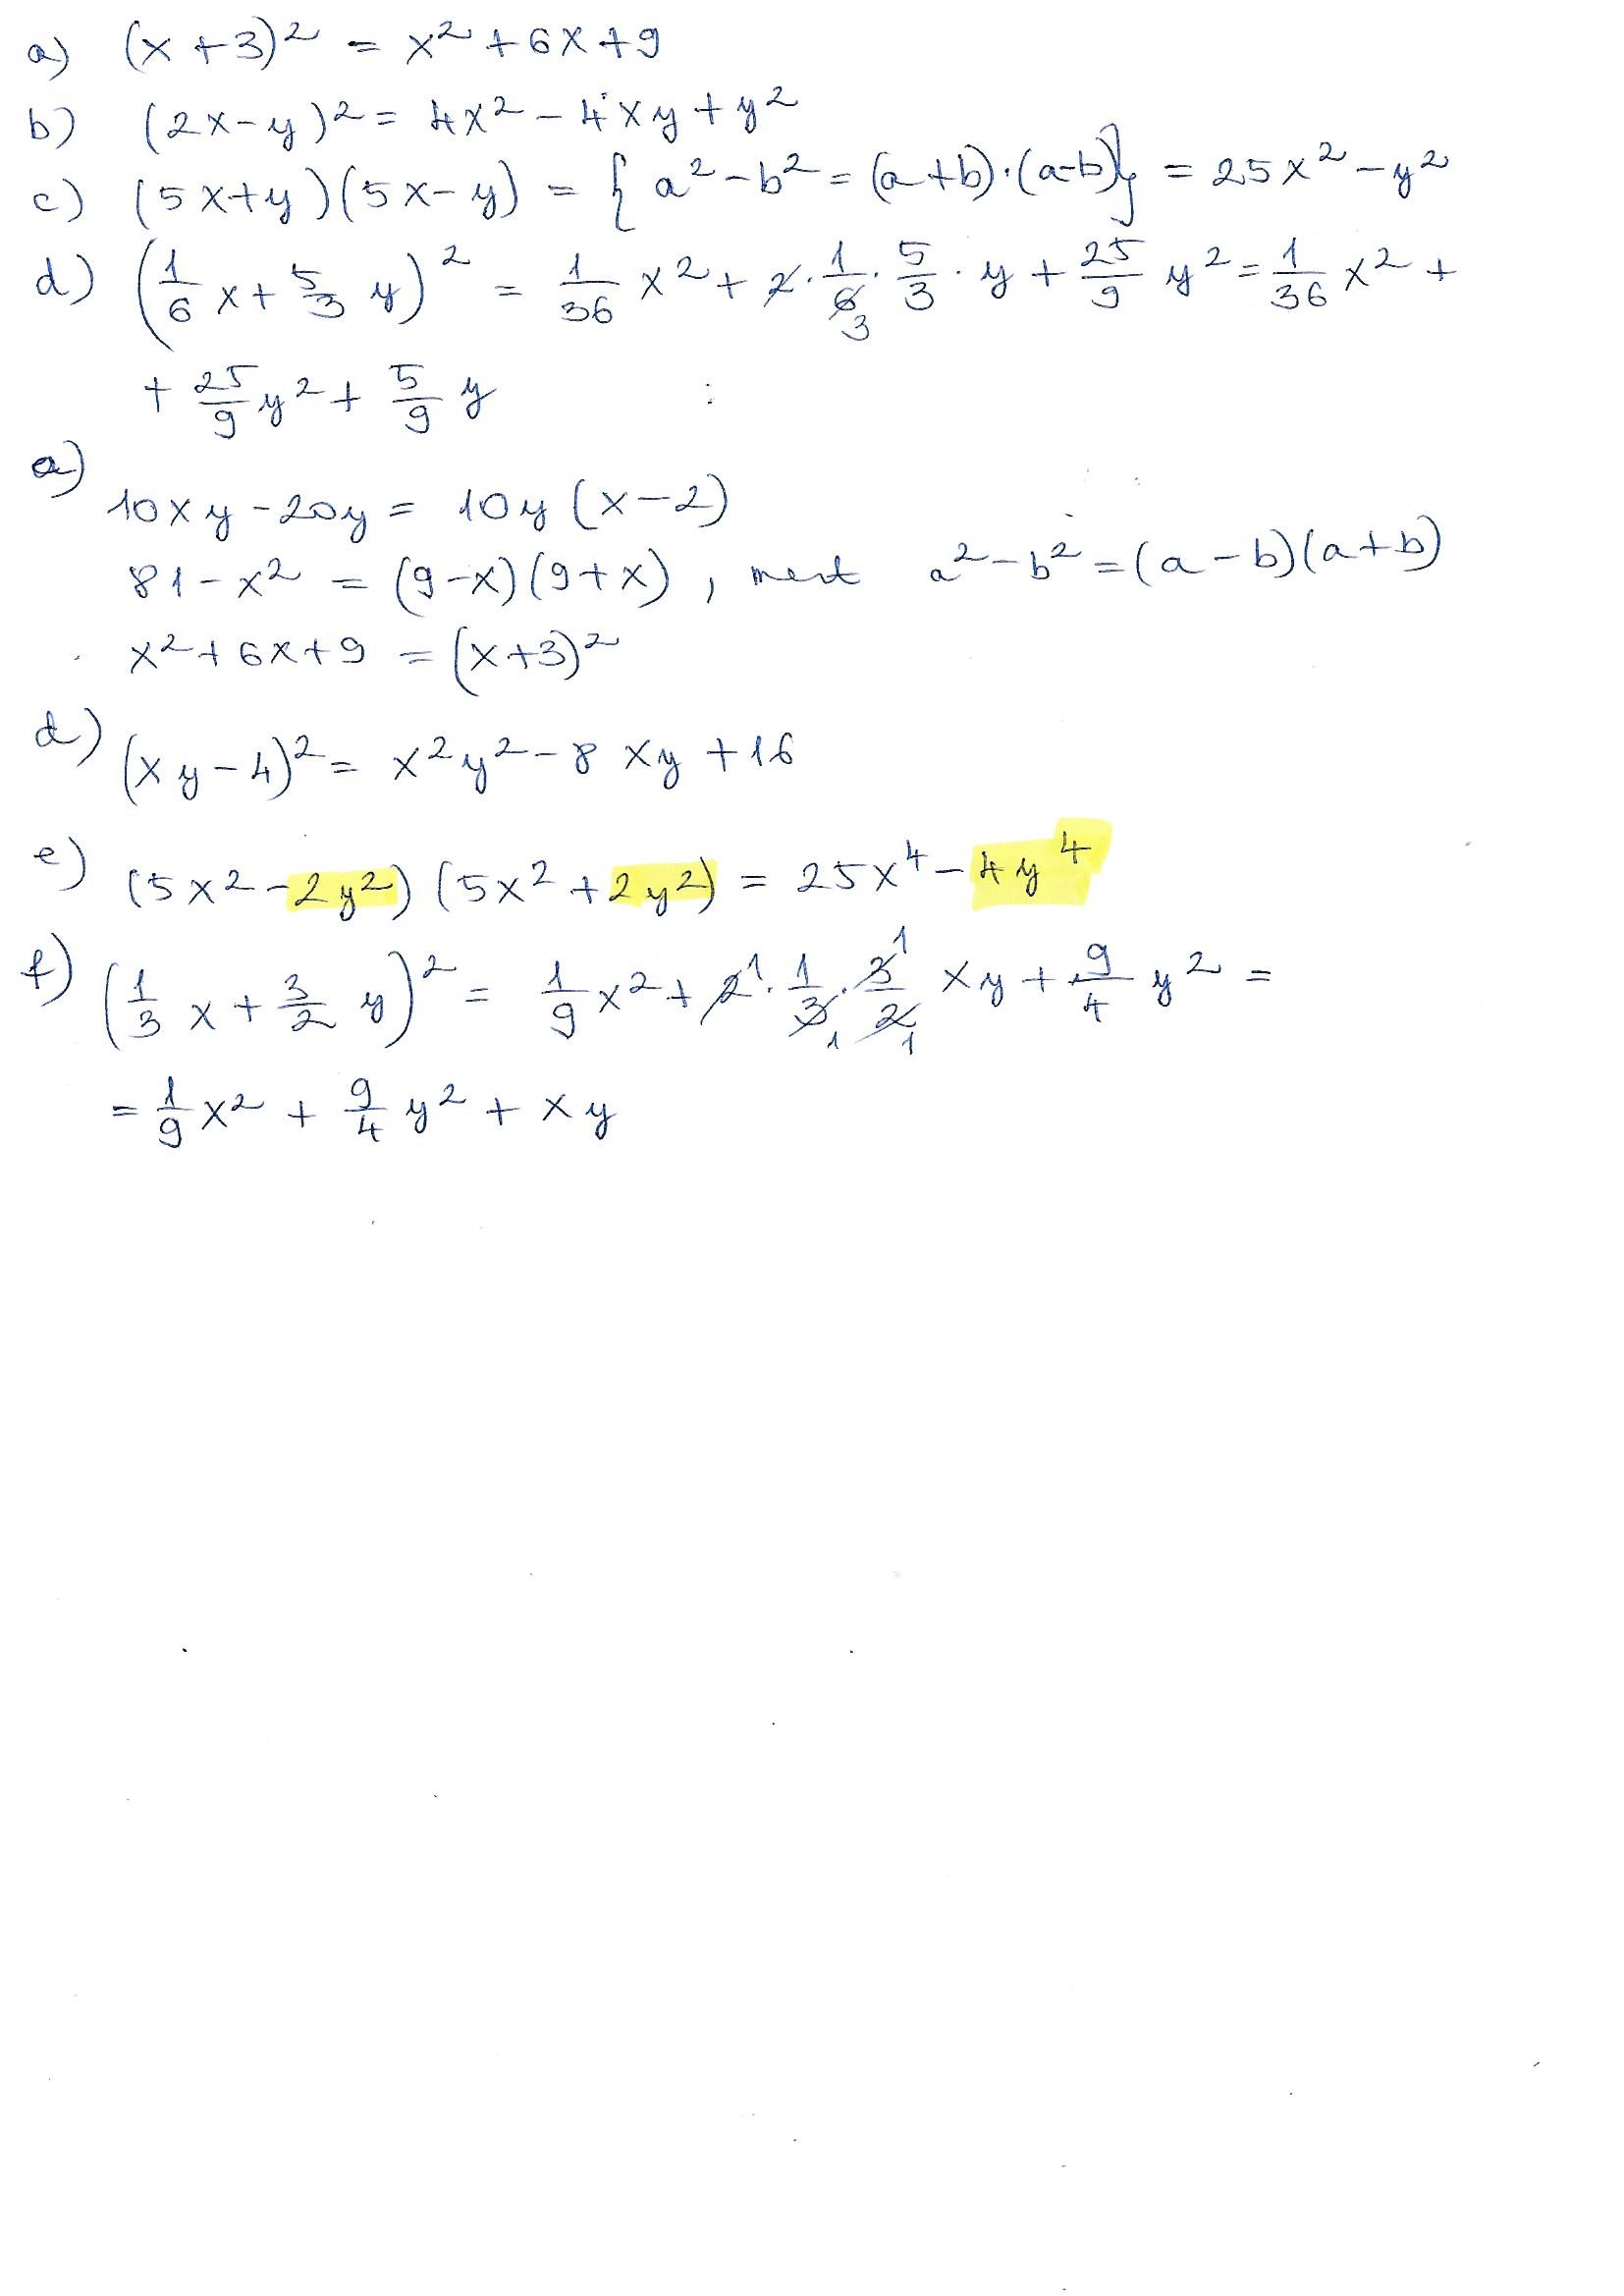 a) (x+3)² = x²+6x+9
b) (2x-y)² = 4x² - 4xy + y²
c) (5x+y)(5x-y) = {a²-b² = (a+b)·(a-b)} = 25x² - y²
d) (1/6 x + 5/3 y)² = 1/36 x² + 2·1/6·5/3·y + 25/9 y² = 1/36 x² +
3
+ 25/9 y² + 5/9 y
a)
10xy - 20y = 10y (x-2)
81 - x² = (9-x)(9+x), mert a²-b² = (a-b)(a+b)
x² + 6x + 9 = (x+3)²
d) (xy-4)² = x²y² - 8xy + 16
e) (5x² - 2y²)(5x² + 2y²) = 25x⁴ - 4y⁴
f) (1/3 x + 3/2 y)² = 1/9 x² + 2¹·1/3₁·3¹/2₁ xy + 9/4 y² =
= 1/9 x² + 9/4 y² + xy